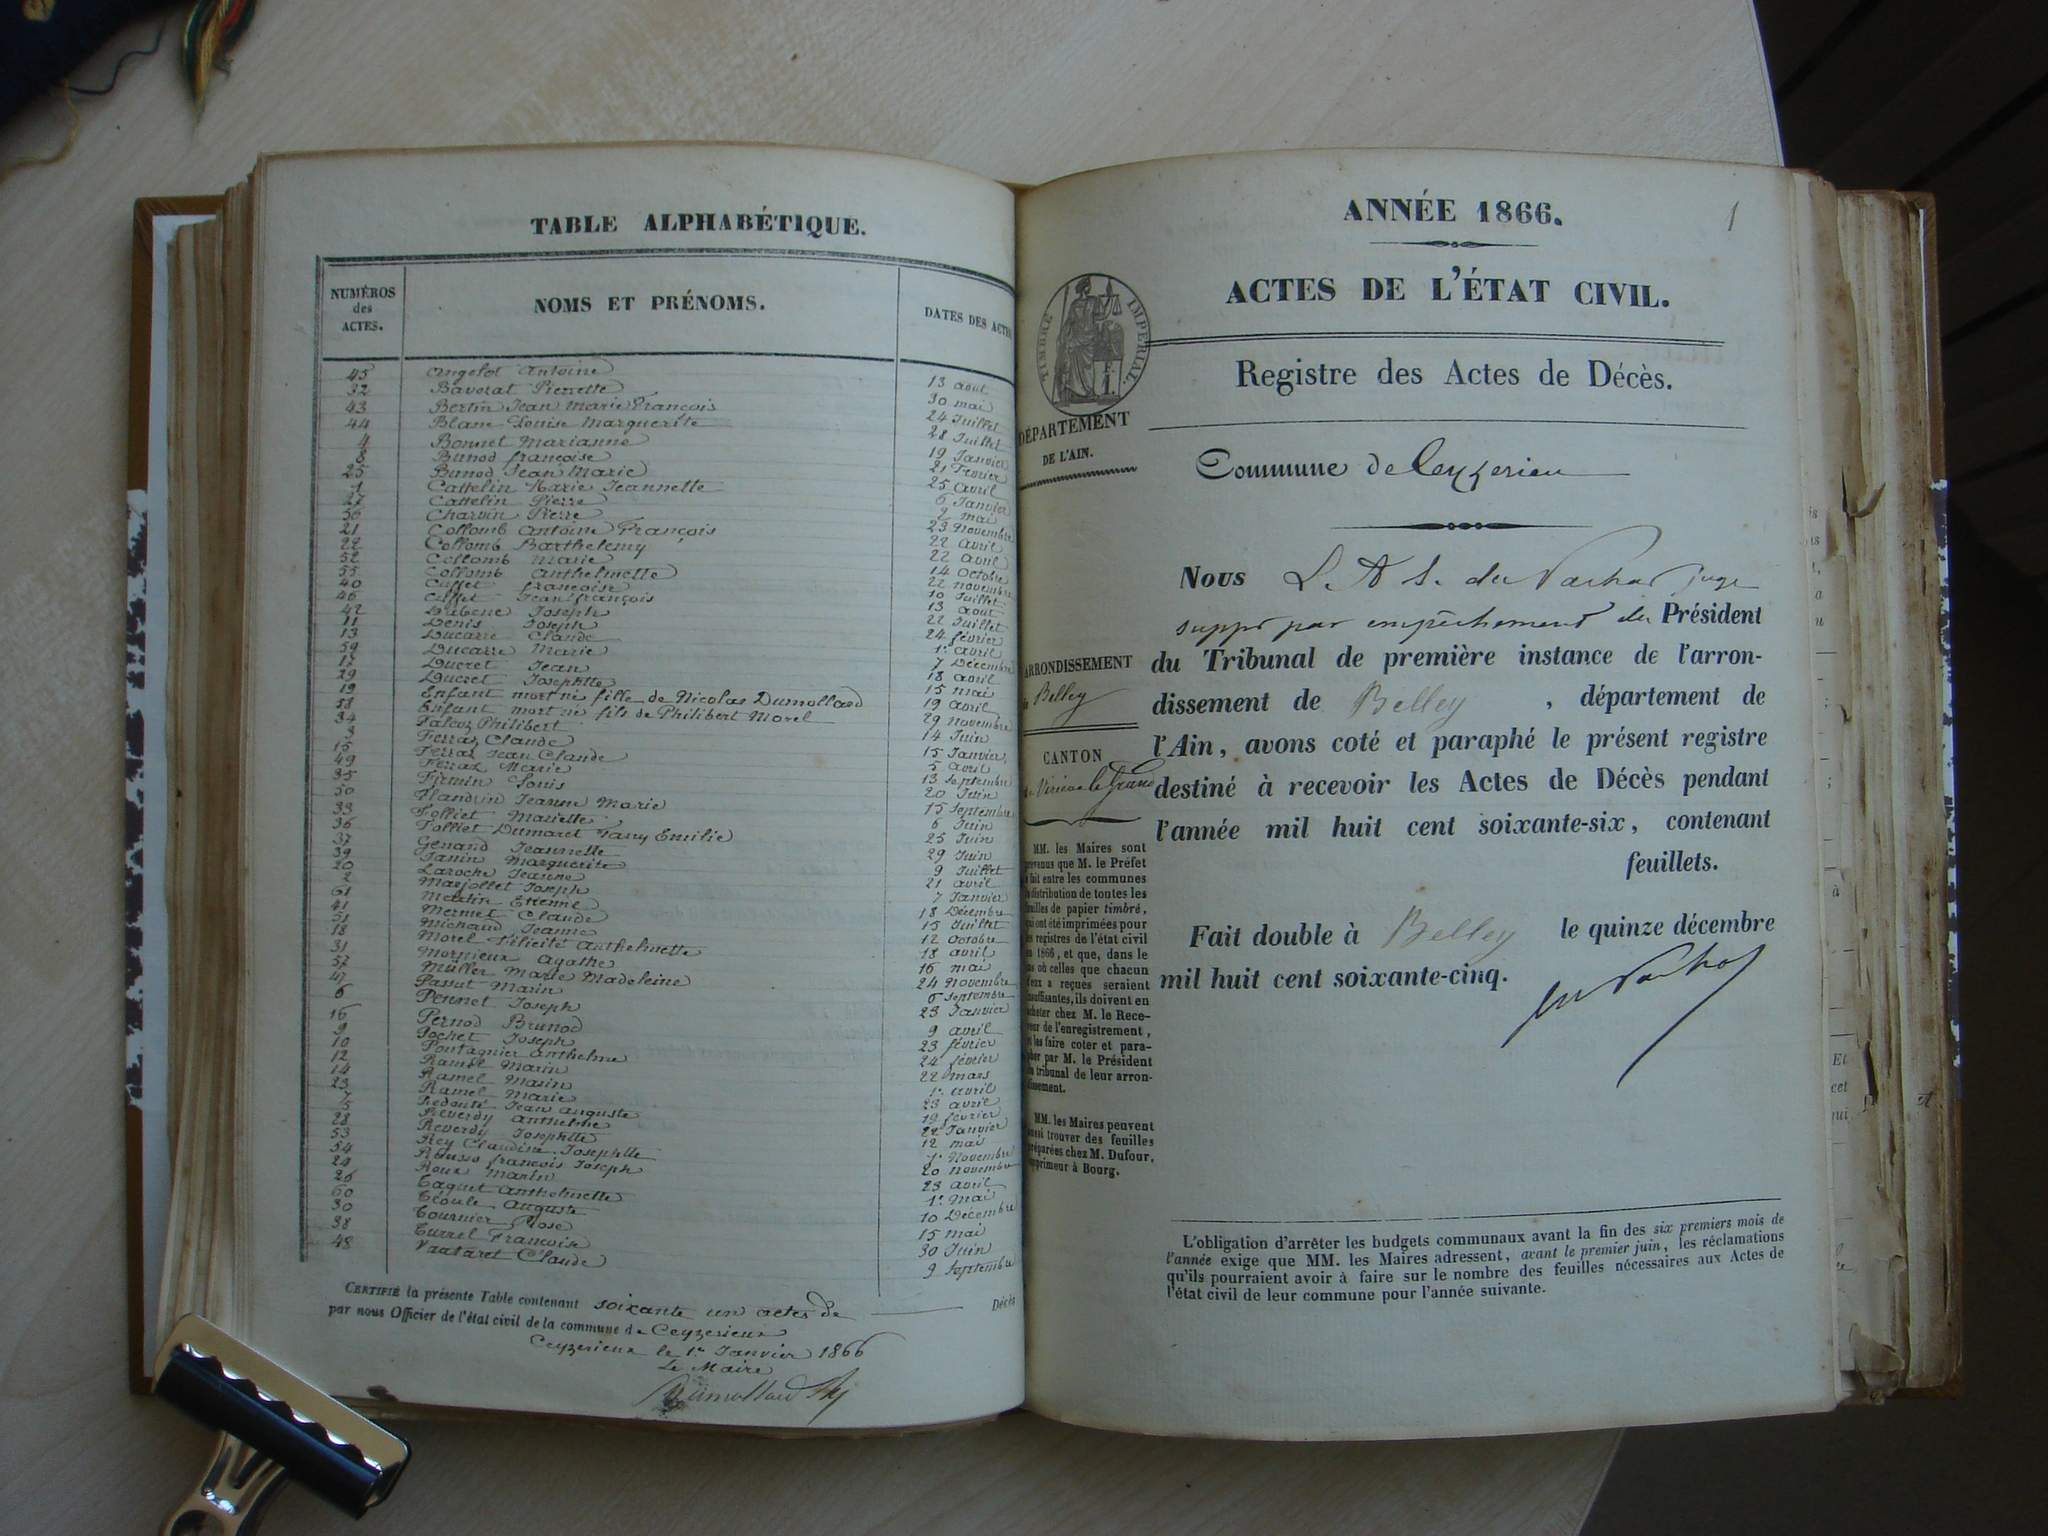 TABLE ALPHABÉTIQUE.
NUMÉROS des ACTES.
NOMS ET PRÉNOMS.
DATES DES ACTES
45 Angelot Antoine 13 aout
32 Baverat Pierrette 30 mai
43 Bertin Jean Marie François 24 Juillet
44 Blanc Louise Marguerite 28 Juillet
4 Bonnet Marianne 19 Janvier
8 Bunod françoise 21 Fevrier
25 Bunod Jean Marie 25 avril
1 Cattelin Marie Jeannette 6 Janvier
27 Cattelin Pierre 2 mai
56 Charvin Pierre 23 novembre
21 Collomb Antoine François 22 avril
22 Collomb Barthelemy 22 avril
52 Collomb Marie 14 octobre
55 Collomb anthelmette 22 novembre
40 Cuffet françoise 10 Juillet
46 Cuffet Jean françois 13 aout
42 Joseph 22 Juillet
11 Denis Joseph 24 février
13 Ducarre Claude 1er avril
59 Ducarre Marie 7 Décembre
17 Ducret Jean 18 avril
29 Ducret Josephtte 15 mai
19 Enfant mort né fille de Nicolas Dumollard 19 avril
58 Enfant mort né fils de Philibert Morel 29 novembre
34 Falcoz Philibert 14 Juin
3 Ferraz Claude 15 Janvier
15 Ferraz Jean Claude 5 avril
49 Ferraz Marie 13 Septembre
35 Firmin Louis 20 Juin
50 Flandrin Jeanne Marie 15 Septembre
33 Folliet Mariette 6 Juin
36 Folliet Dumaret Fanny Emilie 25 Juin
37 Genand Jeannette 29 Juin
39 Janin Marguerite 9 Juillet
20 Laroche Jeanne 21 avril
2 Marjollet Joseph 7 Janvier
61 Martin Etienne 18 Décembre
41 Mermet Claude 15 Juillet
51 Michaud Jeanne 12 octobre
18 Morel Félicité Anthelmette 18 avril
31 Mornieux Agathe 16 mai
57 Müller Marie Madeleine 24 novembre
47 Passut Marin 6 Septembre
6 Pennet Joseph 23 Janvier
16 Pernod Brunod 9 avril
9 Pochet Joseph 23 février
10 Pontagnier Anthelme 24 février
12 Ramel Marin 22 mars
14 Ramel Marin 1er avril
23 Ramel Marie 23 avril
7 Redouté Jean auguste 19 février
5 Reverdy Anthelme 22 Janvier
28 Reverdy Josephtte 12 mai
53 Rey Claudine Josephtte 1er Novembre
54 françois Joseph 20 novembre
24 Roux Martin 23 avril
26 Taquet Anthelmette 1er Mai
60 Téoule Auguste 10 Décembre
30 Tournier Rose 15 mai
38 Turrel Françoise 30 Juin
48 Claude 9 Septembre
CERTIFIÉ la présente Table contenant soixante un actes de Décès
par nous Officier de l'état civil de la commune de Ceyzerieux
Ceyzerieux le 1er Janvier 1866
Le Maire
Dumollard
1
ANNÉE 1866.
ACTES DE L'ÉTAT CIVIL.
TIMBRE IMPÉRIAL.
Registre des Actes de Décès.
DÉPARTEMENT
DE L'AIN.
Commune de Ceyzerieu
Nous L. A. S. du Vachat juge
suppt par empêchement du Président
du Tribunal de première instance de l'arron-
dissement de Belley , département de
l'Ain, avons coté et paraphé le présent registre
destiné à recevoir les Actes de Décès pendant
l'année mil huit cent soixante-six, contenant
feuillets.
Fait double à Belley le quinze décembre
mil huit cent soixante-cinq.
du Vachat
ARRONDISSEMENT
de Belley
CANTON
de Virieu le Grand
MM. les Maires sont
prévenus que M. le Préfet
a fait entre les communes
la distribution de toutes les
feuilles de papier timbré,
qui ont été imprimées pour
les registres de l'état civil
en 1866, et que, dans le
cas où celles que chacun
d'eux a reçues seraient
insuffisantes, ils doivent en
acheter chez M. le Rece-
veur de l'enregistrement,
et les faire coter et para-
pher par M. le Président
du tribunal de leur arron-
dissement.
MM. les Maires peuvent
aussi trouver des feuilles
préparées chez M. Dufour,
imprimeur à Bourg.
L'obligation d'arrêter les budgets communaux avant la fin des six premiers mois de
l'année exige que MM. les Maires adressent, avant le premier juin, les réclamations
qu'ils pourraient avoir à faire sur le nombre des feuilles nécessaires aux Actes de
l'état civil de leur commune pour l'année suivante.